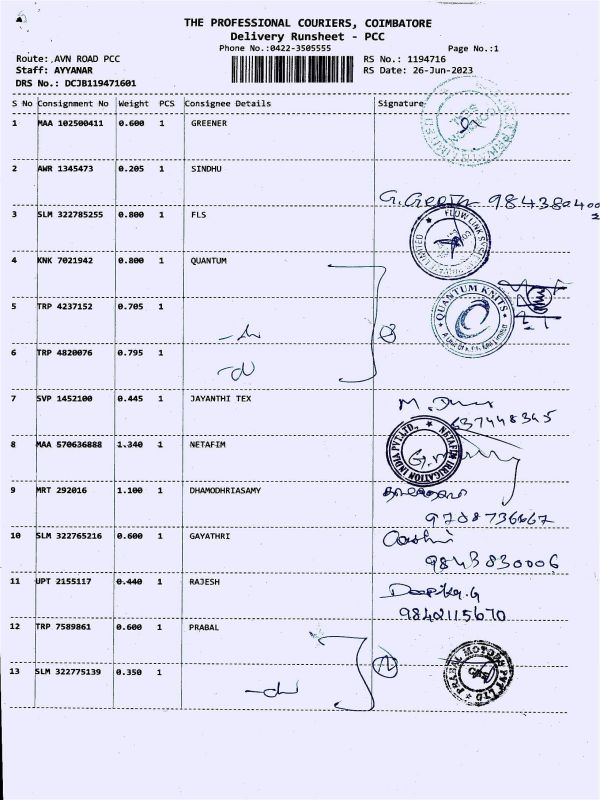 THE PROFESSIONAL COURIERS, COIMBATORE
Delivery Runsheet - PCC
Phone No.:0422-3505555 Page No.:1
Route: AVN ROAD PCC RS No.: 1194716
Staff: AYYANAR RS Date: 26-Jun-2023
DRS No.: DCJB119471601
S No Consignment No Weight PCS Consignee Details Signature
1 MAA 102500411 0.600 1 GREENER
2 AWR 1345473 0.205 1 SINDHU
G. Geetha
3 SLM 322785255 0.800 1 FLS
FLOW LINK SYST
4 KNK 7021942 0.800 1 QUANTUM
QUANTUM KNITS
5 TRP 4237152 0.705 1
6 TRP 4820076 0.795 1
7 SVP 1452100 0.445 1 JAYANTHI TEX
8 MAA 570636888 1.340 1 NETAFIM
NETAFIM IRRIGATION INDIA PVT.LTD.
9 MRT 292016 1.100 1 DHAMODHRIASAMY
9788736667
10 SLM 322765216 0.600 1 GAYATHRI
9843830006
11 UPT 2155117 0.440 1 RAJESH
Deepika.G
9842115670
12 TRP 7589861 0.600 1 PRABAL
PRABAL MOTORS PVT LTD
13 SLM 322775139 0.350 1